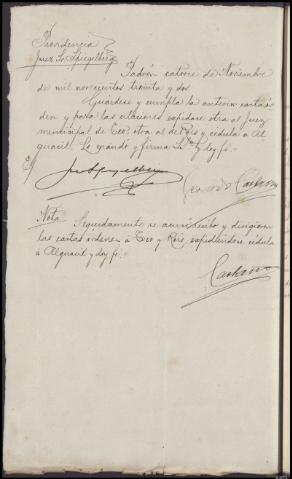 Providencia
Juez Sr. Spiegelberg
Padrón catorce de Noviembre
de mil novecientos treinta y dos.
Guardese y cumpla la anterior carta ór-
den y para las citaciones expídase otra al Juez
municipal de Teo, otra al de Rois y cédula a Al-
guacil. Lo mando y firma S.Sª y doy fé.=
Nota. Seguidamente se y dirigieron
las cartas ordenes a Teo y Rois, expidiéndose cédula
a Alguacil y doy fé.=